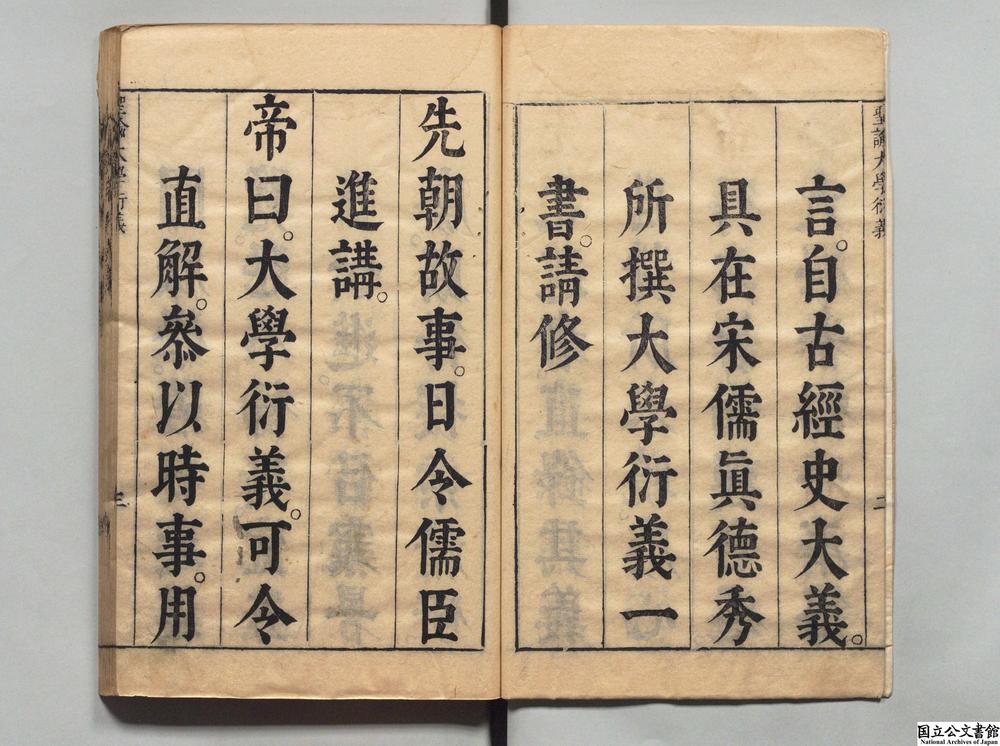 聖諭大學衍義
言。自古經史大義。
具在宋儒眞德秀
所撰大學衍義一
書。請修
二
先朝故事。日令儒臣
進講。
帝曰。大學衍義。可令
直解。叅以時事。用
聖諭大學衍義
三
国立公文書館
National Archives of Japan